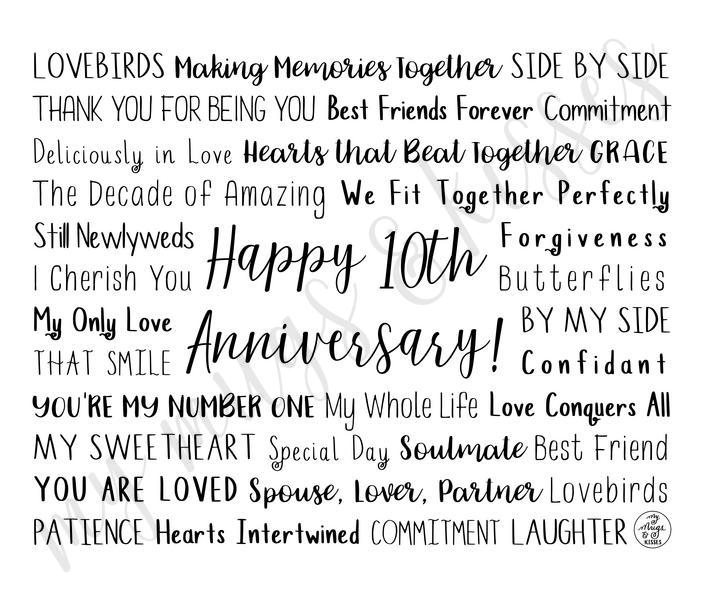 LOVEBIRDS Making Memories Together SIDE BY SIDE
THANK YOU FOR BEING YOU Best Friends Forever Commitment
Deliciously in Love Hearts that Beat Together GRACE
The Decade of Amazing We Fit Together Perfectly
Still Newlyweds
I Cherish You
Happy 10th
Forgiveness
Butterflies
My Only Love
THAT SMILE
Anniversary!
BY MY SIDE
Confidant
YOU'RE MY NUMBER ONE My Whole Life Love Conquers All
MY SWEETHEART Special Day Soulmate Best Friend
YOU ARE LOVED Spouse, Lover, Partner Lovebirds
PATIENCE Hearts Intertwined COMMITMENT LAUGHTER
my
Mugs
&
KISSES
my mugs & kisses